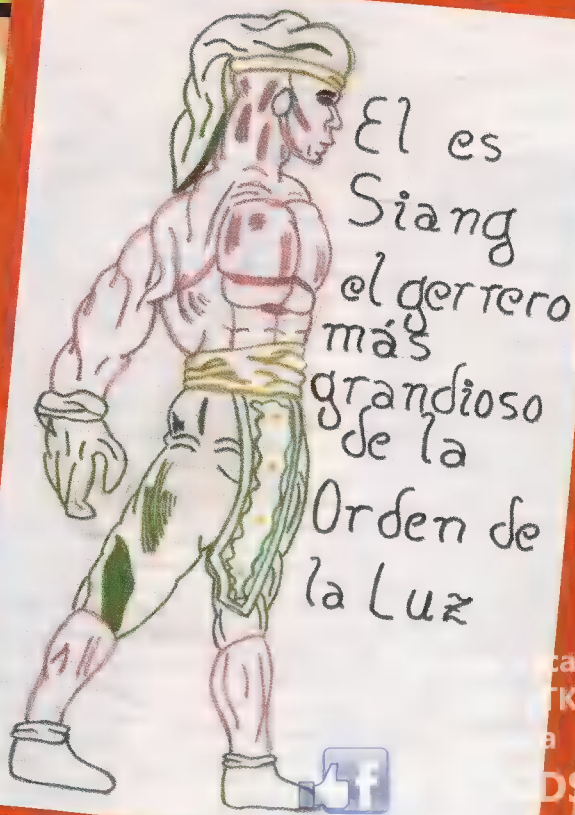 El es
Siang
el gerrero
más
grandioso
de la
Orden de
la Luz
ca
TK
a
DS
f